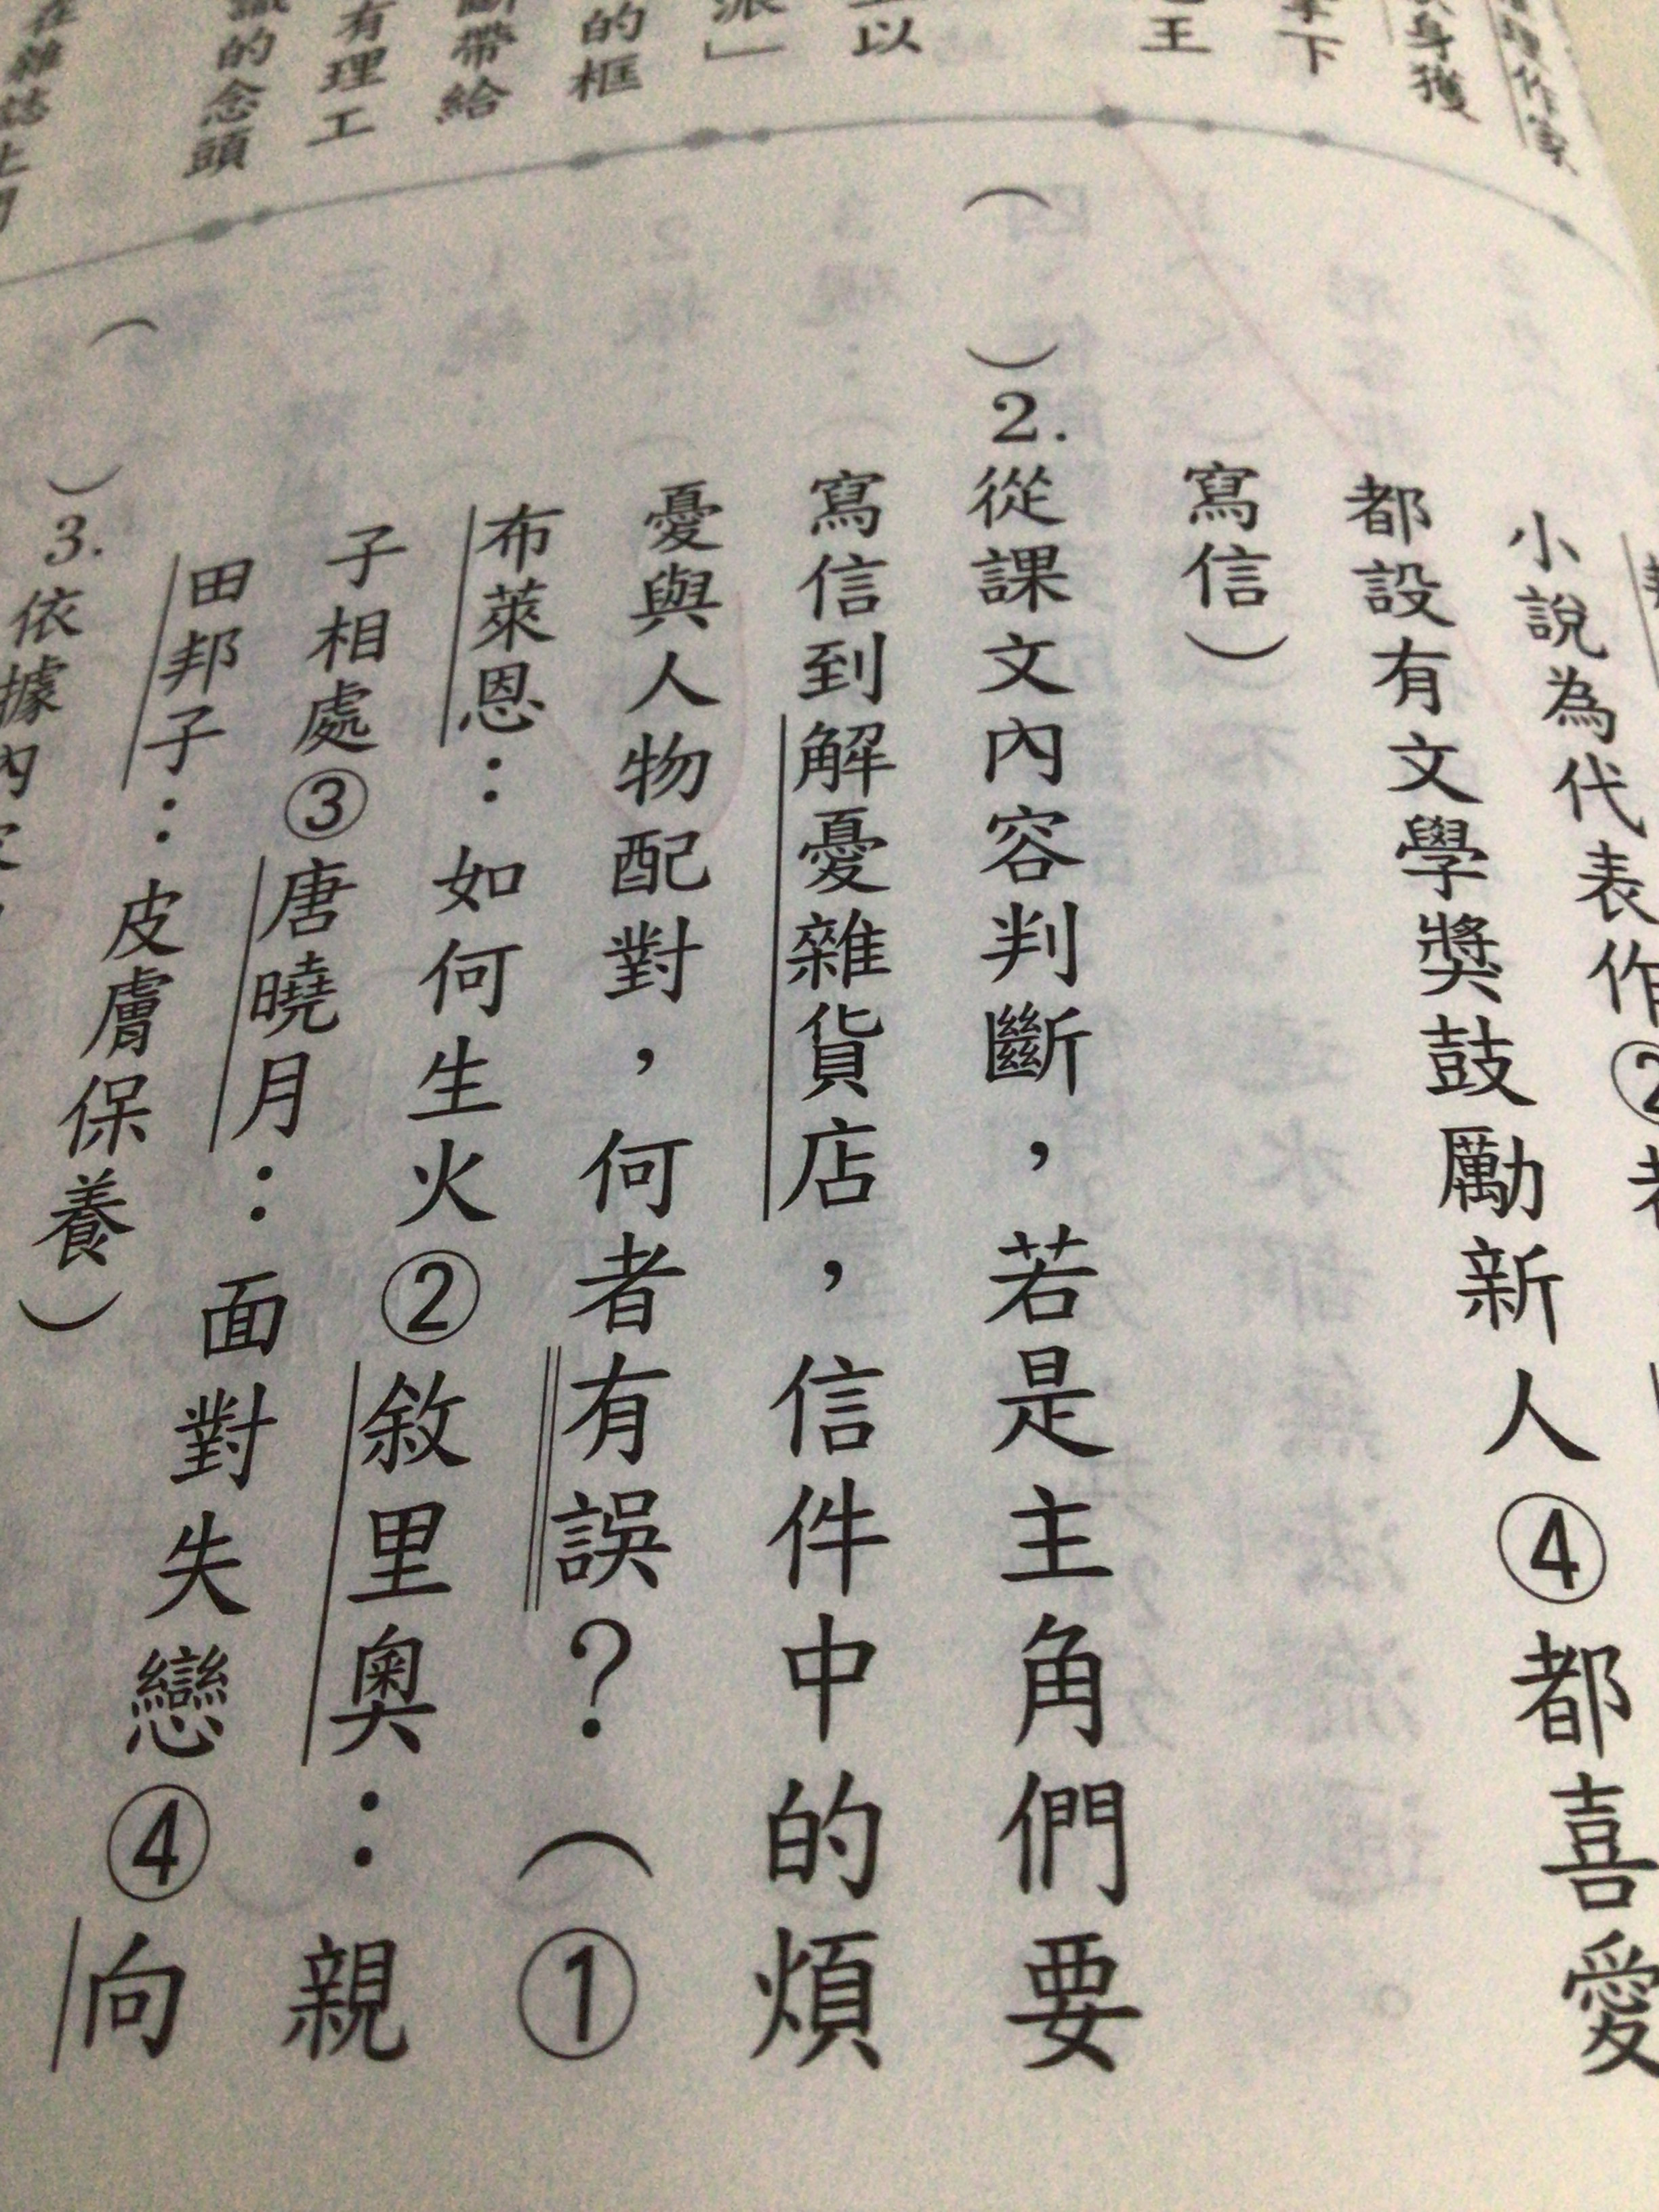 作家
身獲
下
王
以
派」
的框
帶給
有理工
的念頭
在雜誌
小說為代表作②
都設有文學獎鼓勵新人④都喜愛
寫信）
（　）2.從課文內容判斷，若是主角們要
寫信到解憂雜貨店，信件中的煩
憂與人物配對，何者有誤？（①
布萊恩：如何生火②敘里奧：親
子相處③唐曉月：面對失戀④向
田邦子：皮膚保養）
（　）3.依據內